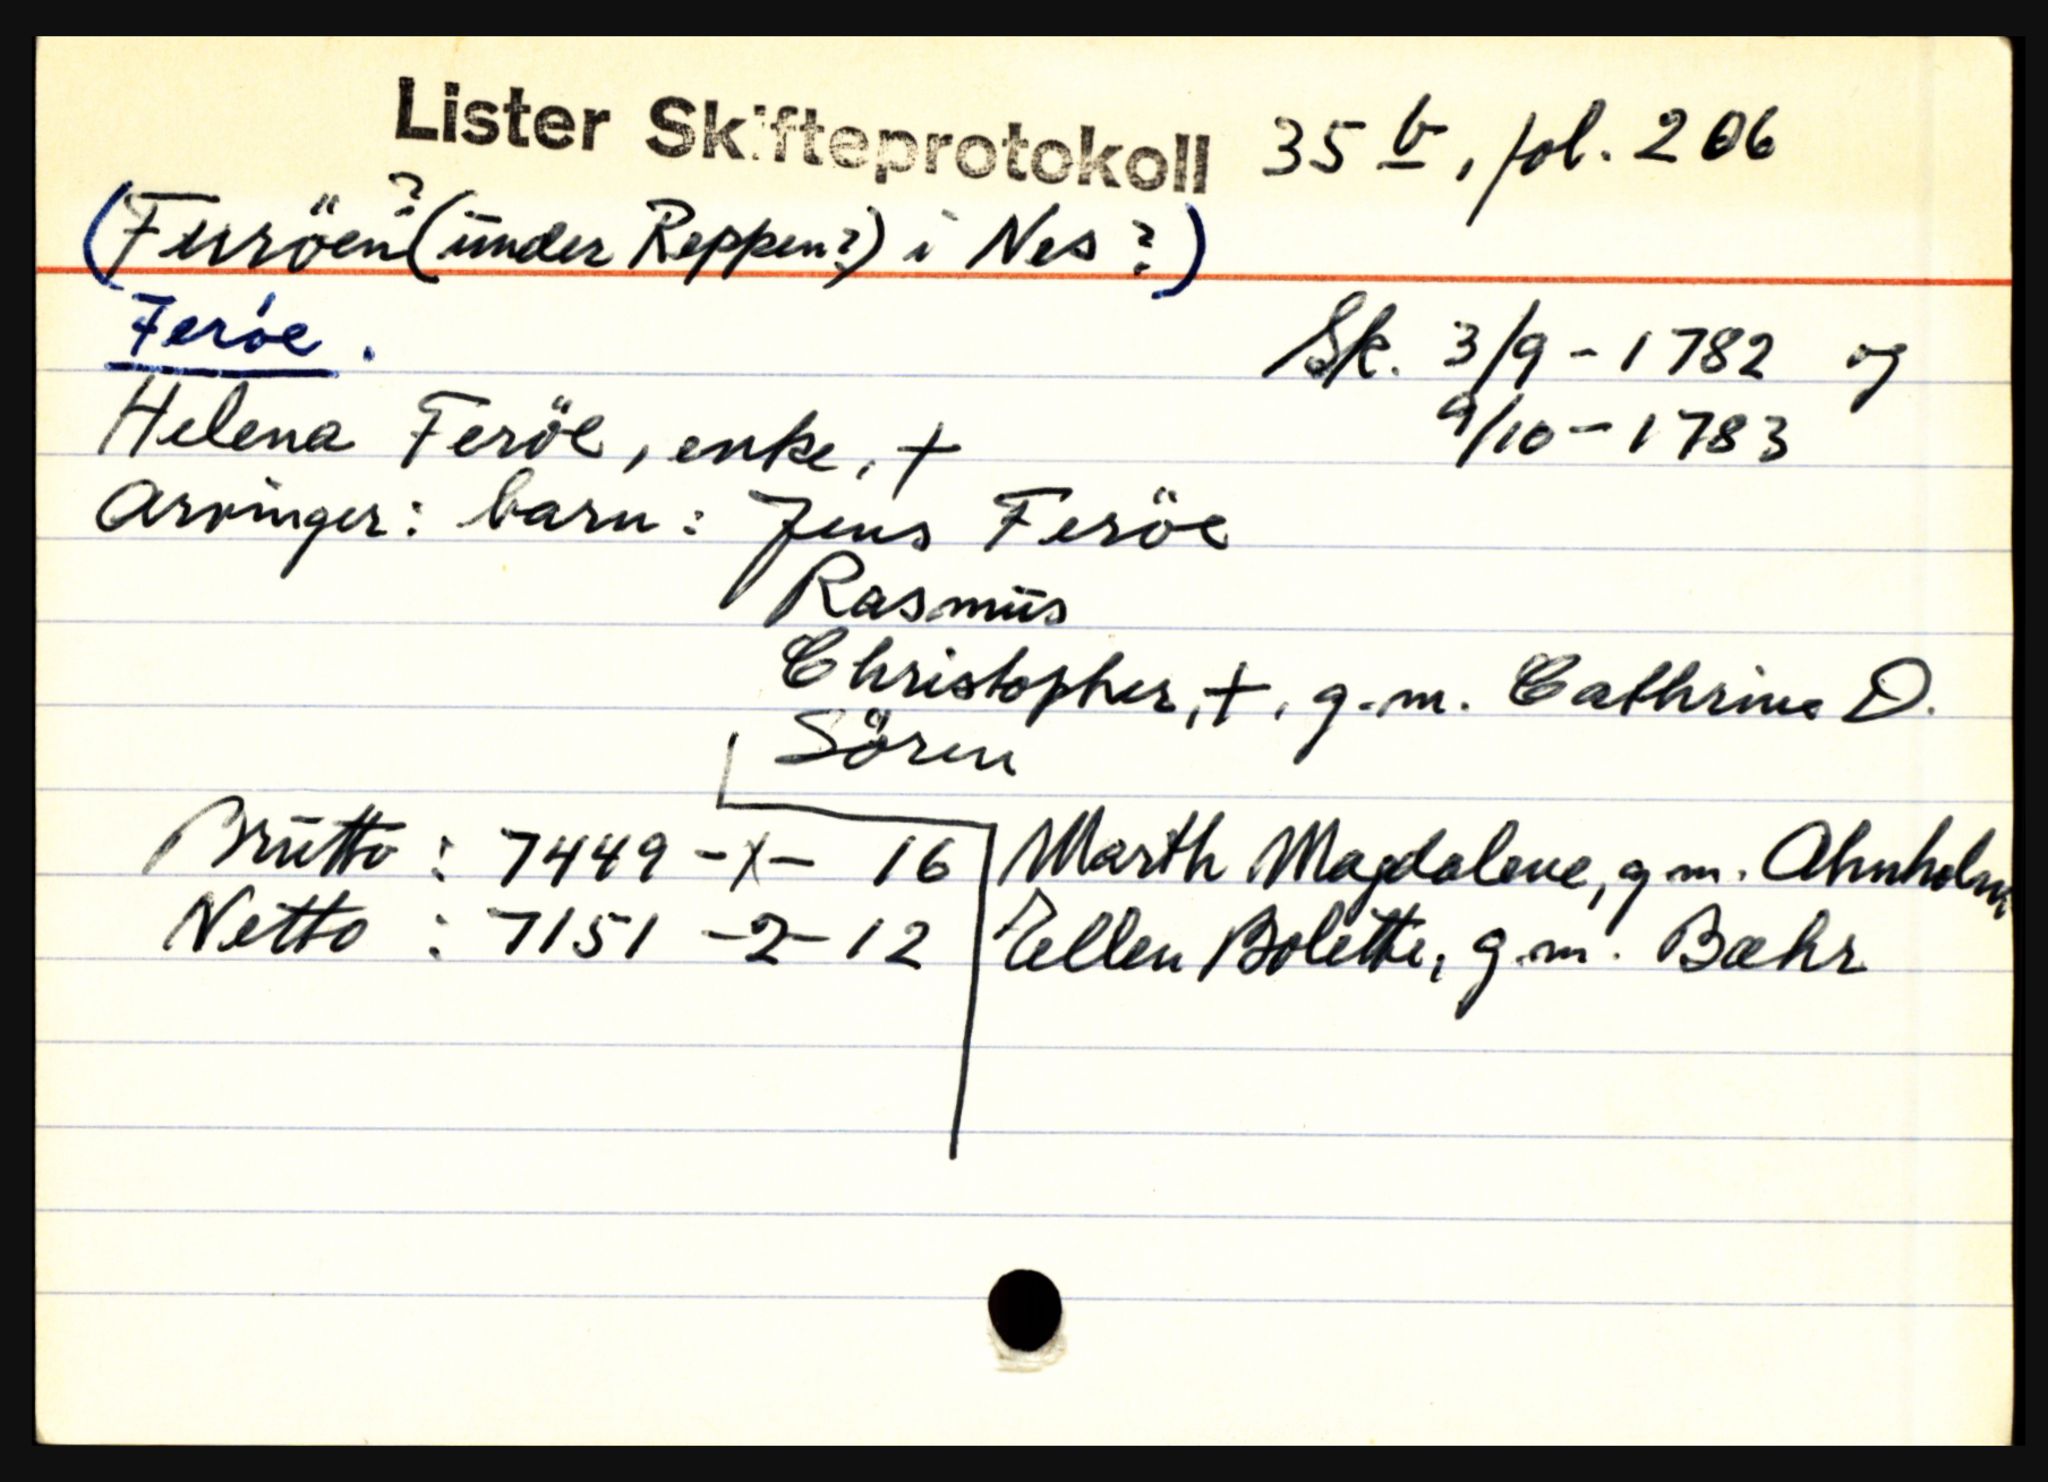 Lister Skifteprotokoll 35 b, fol. 206
(Ferröen? (under Reppen?) i Nes?)
Feröe.
Sk. 3/9 - 1782 og
9/10 - 1783
Helena Feröe, enke, +
Arvinger: barn: Jens Feröe
Rasmus
Christopher, +, g.m. Cathrine D.
Sören
Brutto : 7449 -x- 16
Netto : 7151 -2- 12
Marth Magdalene, g.m. Ahnholm
Ellen Bolette, g.m. Bæhr